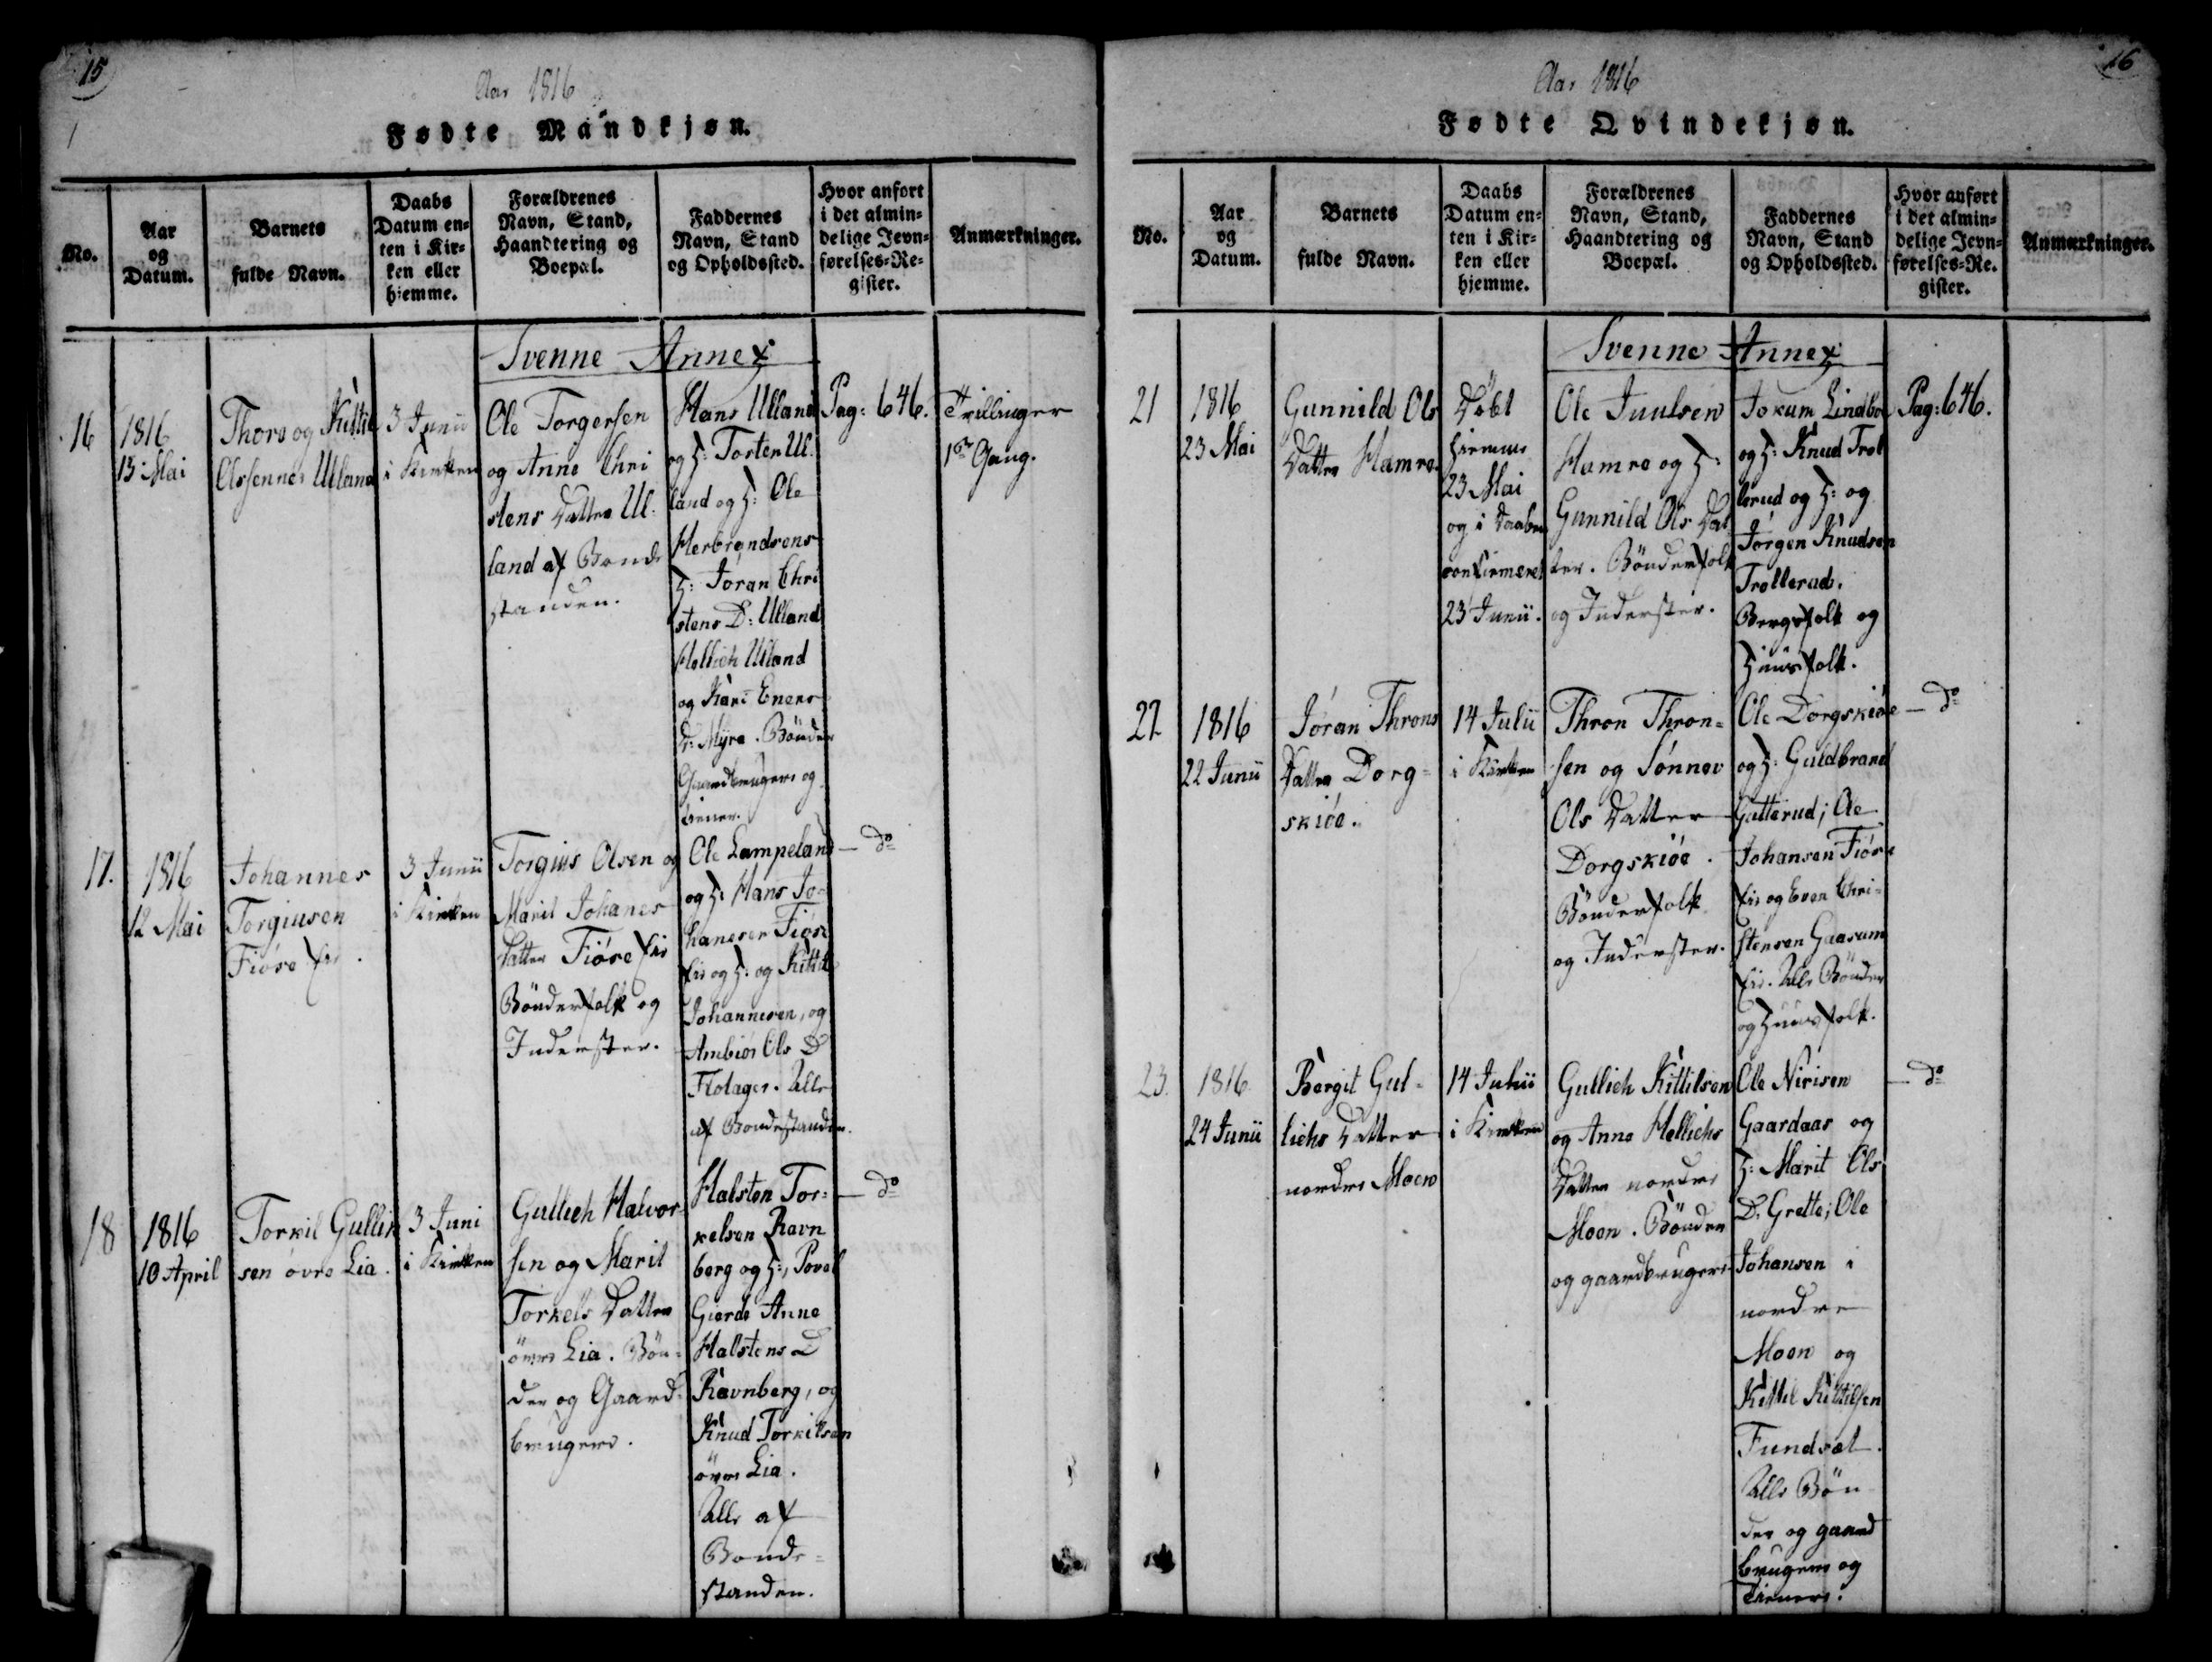 15
Aar 1816
Fødte Mandkjøn.
No.
Aar
og
Datum.
Barnets
fulde Navn.
Daabs
Datum en-
ten i Kir-
ken eller
hjemme.
Forældrenes
Navn, Stand,
Haandtering og
Boepæl.
Faddernes
Navn, Stand
og Opholdssted.
Hvor anført
i det almin-
delige Jevn-
førelses-Re-
gister.
Anmærkninger.
Svenne Annex
16
1816
13 Mai
Thoro og Kittil
Olssenner Ulland
3 Junii
i Kirken
Ole Torgersen
og Anne Chri
stens Datter Ul-
land af Bonde
standen.
Hans Ulland
og H: Torsten Ul-
land og H: Ole
Herbrandsens
H: Jøran Chri
stens D: Ulland
Hellich Ulland
og Kari Eners
D: Myre. Bønder
Gaardbrugere og
tiener.
Pag: 646.
Tvillinger
1ste Gang.
17.
1816
12 Mai
Johannes
Torgiusen
Fiøse fis.
3 Junii
i Kirken
Torgius Olsen og
Marit Johanes
Datter Fiøse fis
Bønderfolk og
Inderster.
Ole Lampeland
og H: Hans Jo-
hanesen Fiøse
fis og H: og Kittil
Johannesen, og
Ambiør Ols D
Flotager. Alle
af Bondestanden.
— do
18
1816
10 April
Torkil Gullik
sen øvre Lia.
3 Juni
i Kirken
Gullich Halvor-
sen og Marit
Torkels Datter
øvre Lia. Bøn-
der og Gaard-
brugere.
Halsten Tor-
kelsen Ravn
berg og H:, Povel
Gierde Anne
Halstens D
Ravnberg, og
Knud Torkilsen
øvre Lia.
Alle af
Bonde-
standen.
— do
16
Aar 1816
Fødte Qvindekjøn.
No.
Aar
og
Datum.
Barnets
fulde Navn.
Daabs
Datum en-
ten i Kir-
ken eller
hjemme.
Forældrenes
Navn, Stand,
Haandtering og
Boepæl.
Faddernes
Navn, Stand
og Opholdssted.
Hvor anført
i det almin-
delige Jevn-
førelses-Re-
gister.
Anmærkninger.
Svenne Annex
21
1816
23 Mai
Gunnild Ols
Datter Hamre.
Døbt
hiemme
23 Mai
og i Daaben
confirmeret
23 Junii.
Ole Juulsen
Hamre og H:
Gunnild Ols Dat
ter. Bønderfolk
og Inderster.
Jokum Lindbo
og H: Knud Trol
lerud og H: og
Jørgen Knudsen
Trollerud.
Bergsfolk og
Huusfolk.
Pag: 646.
22
1816
22 Junii
Jøran Throns
Datter Dorg-
skiøe.
14 Julii
i Kirken
Thron Thron-
sen og Sønnev
Ols Datter
Dorgskiøe.
Bønderfolk
og Inderster.
Ole Dorgskiøe
og H: Guldbrand
Gutterud; Ole
Johansen Fiøse
fis og Even Chri-
stensen Gaasum
fis. Alle Bønder
og Huusfolk.
— do
23.
1816
24 Junii
Bergit Gul-
lichs Datter
nordre Moen
14 Julii
i Kirken
Gullich Kittilsen
og Anne Hellichs
Datter nordre
Moen. Bønder
og gaardbrugere
Ole Nirisen
Gaardaas og
H: Marit Ols
D. Grette; Ole
Johansen i
nordre
Moen og
Kittil Kittilsen
Fundsæt.
Alle Bøn
der og gaard
brugere og
Tienere.
— do